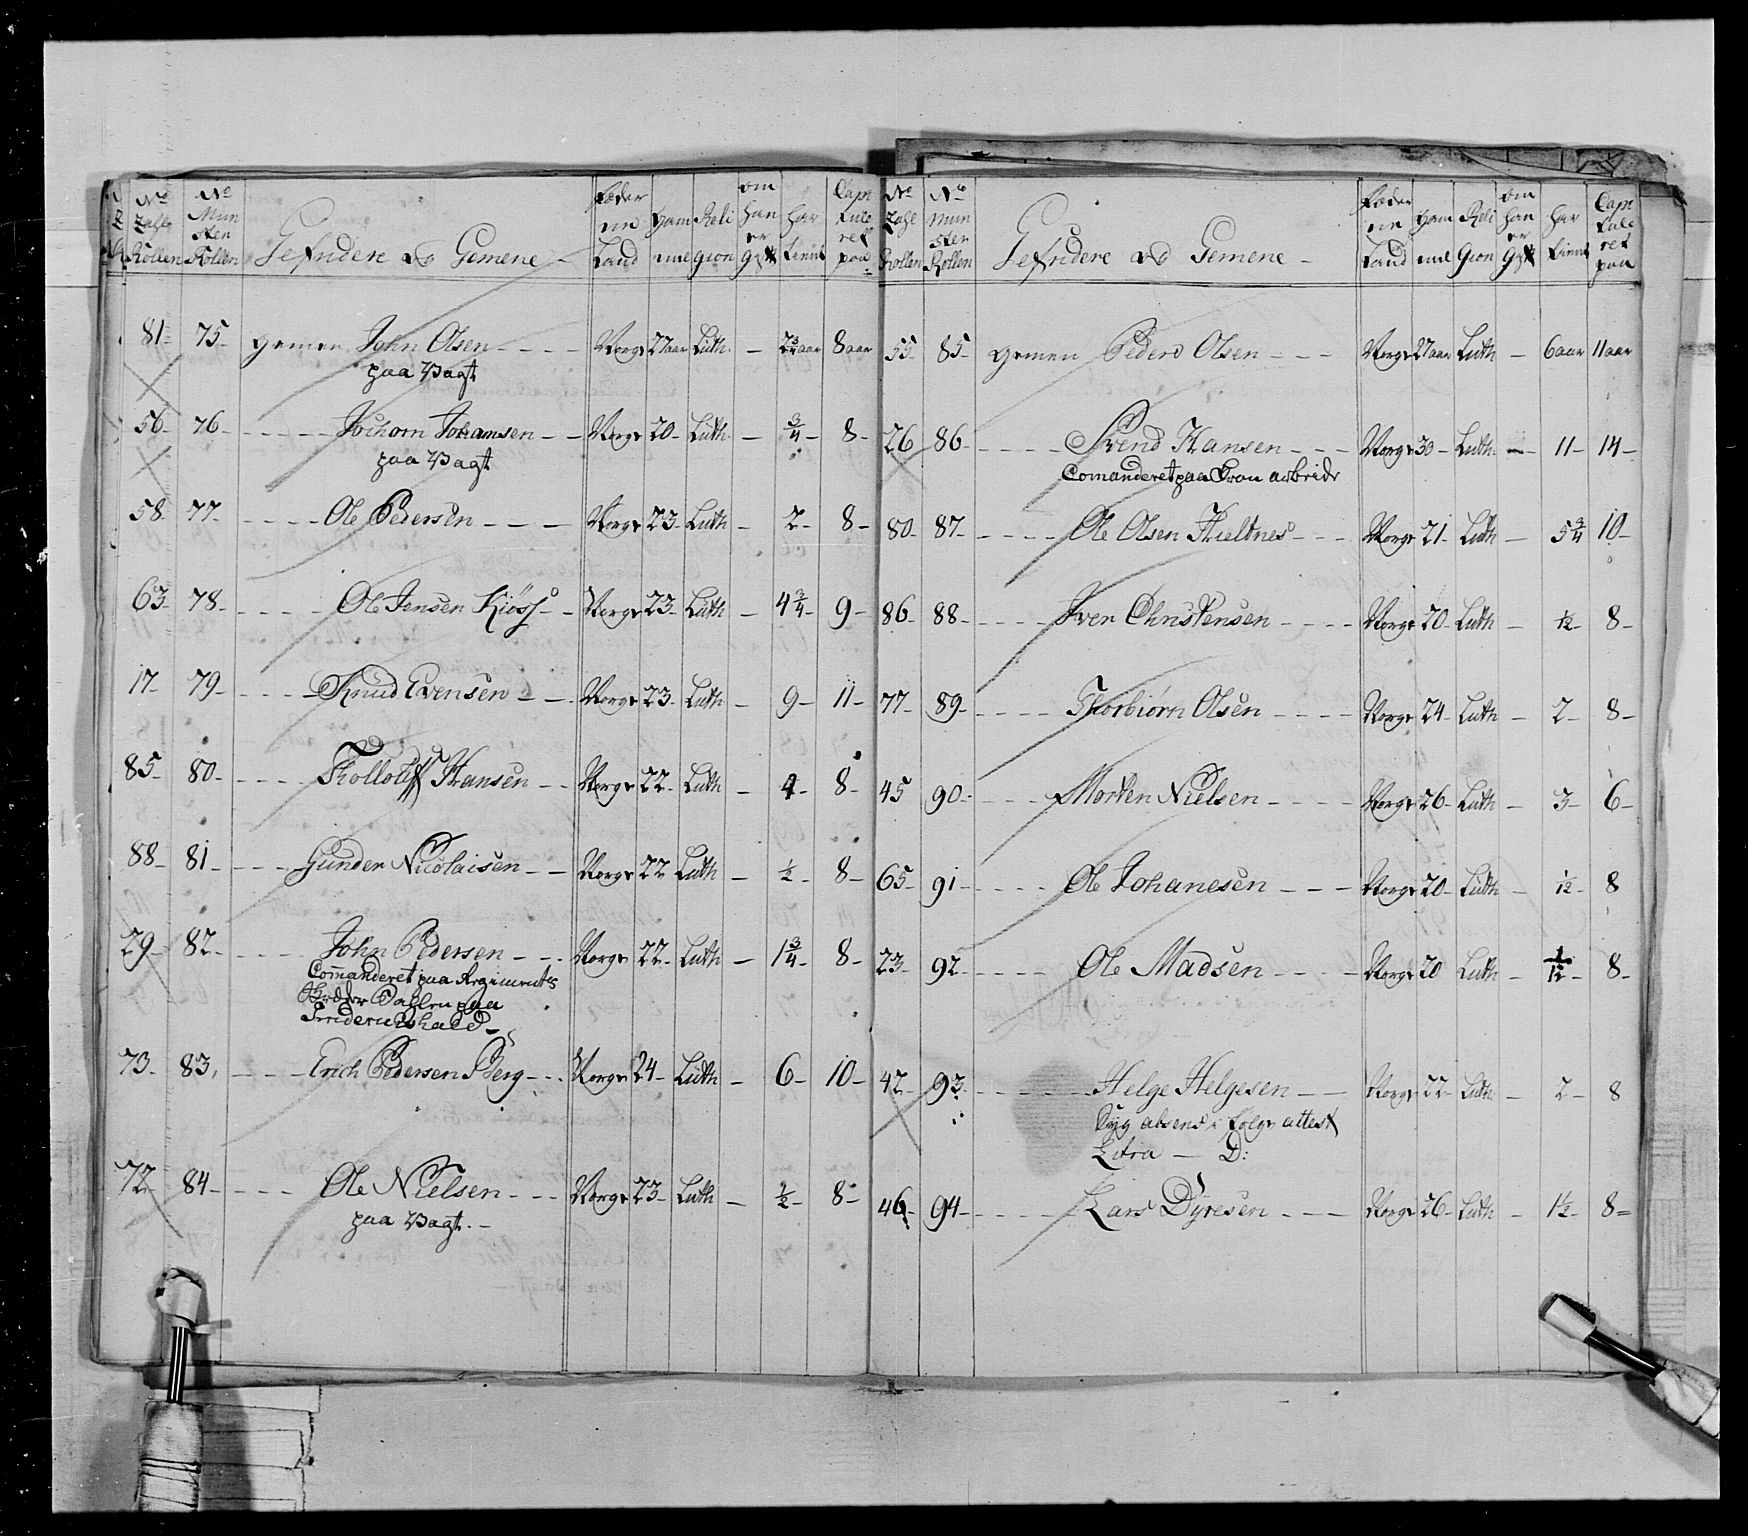 No Zahl Rollen | No Mun sten Rollen | Gefridere og Gemene | Føder ne Land | ham me | Reli gion | om han er gift | har tient | Capi tule ret paa
81 - 75 - gemen John Olsen - - - - Norge 27 aar Luth. - 2 3/4 aar 8 aar
paa Vagt
56 - 76 - - - - - Johansen - - Norge 20 - Luth. - 3/4 - 8 -
paa Vagt
58 - 77 - - - - - Ole Pedersen - - - Norge 23 - Luth - 2 - 8 -
63 - 78 - - - - - Ole Jensen - - Norge 23 - Luth - 4 3/4 - 9 -
17 - 79 - - - - - Knud Evensen - - Norge 23 - Luth - 9 - 11 -
85 - 80 - - - - - Tholloff Hansen - - Norge 22 - Luth - 4 - 8 -
88 - 81 - - - - Gunder Nicolaisen - - Norge 22 Luth - 1/2 - 8 -
29 - 82 - - - - - John Pedersen - - - Norge 22 - Luth - 1 3/4 - 8 -
Comanderet paa Regiments
paa
Friderichshald -
73 - 83, - - - - Erich Pedersen Berg - - - Norge 24 - Luth - 6 - 10 -
72 - 84 - - - - Ole Nielsen - - - Norge 23 - Luth - 1/2 - 8 -
paa Vagt. -
No Zahl Rollen | No Mun sten Rollen | Gefridere og Gemene - | Føder ne Land | ham me | Reli gion | om han er gift | har tient | Capi tule ret paa
55 - 85 - gemen Peder Olsen - - - Norge 27 aar Luth - 6 aar 11 aar
26 86 - - - - - Svend Hansen - - - Norge 30 - Luth - - 11 - 14 -
Comanderet paa arbeide
80 - 87 - - - - - Ole Olsen Hieltnes - - - Norge 21 - Luth - 5 3/4 10 -
86 - 88 - - - - - Iver Christensen - - - - Norge 20 - Luth - 1/2 - 8 -
77 - 89 - - - - - Thorbiørn Olsen - - - - Norge 24 - Luth - 2 - 8 -
45 90 - - - - Morten Nielsen - - - - Norge 26 - Luth - 3 - 6 -
65 - 91 - - - - - Ole Johanesen - - - Norge 20 - Luth - 1/2 - 8
23 - 92 - - - - - Ole Madsen - - - - Norge 20 Luth - 1/12 - 8 -
42 - 93 - - - - - - Helge Helgesen - - Norge 22 - Luth - 2 - 8
Syg absens i følge attest
Litra - D:
46 - 94 - - - - - Lars Dyresen - - - Norge 26 - Luth - 1 1/2 - 8 -